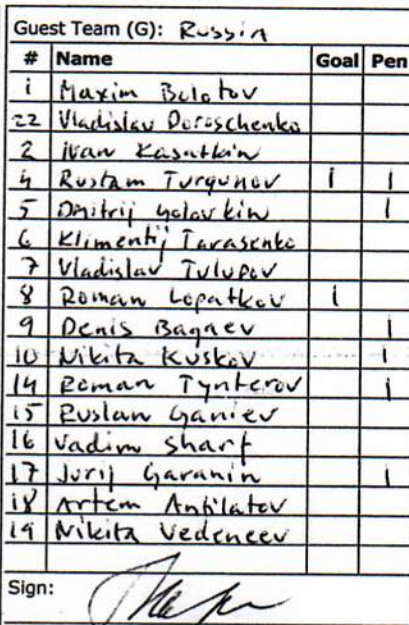 Guest Team (G): Russia
# Name Goal Pen
1 Maxim Bolotov
22 Vladislav Doroschenko
2 Ivan Kasutkin
4 Rustam Turgunov 1 1
5 Dmitrij Golovkin 1
6 Klimentij Tarasenko
7 Vladislav Tulupov
8 Roman Lopatkov 1
9 Denis Bagaev 1
10 Nikita Kuskov 1
14 Roman Tynterov 1
15 Ruslan Ganiev
16 Vadim Sharf
17 Jurij Garanin 1
18 Artem Antilatov
19 Nikita Vedeneev
Sign: